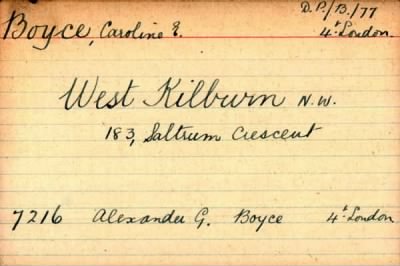 D.P./B./77
Boyce, Caroline E. 4th London.
West Kilburn N.W.
183, Saltrum Crescent
7216 Alexander G. Boyce 4th London